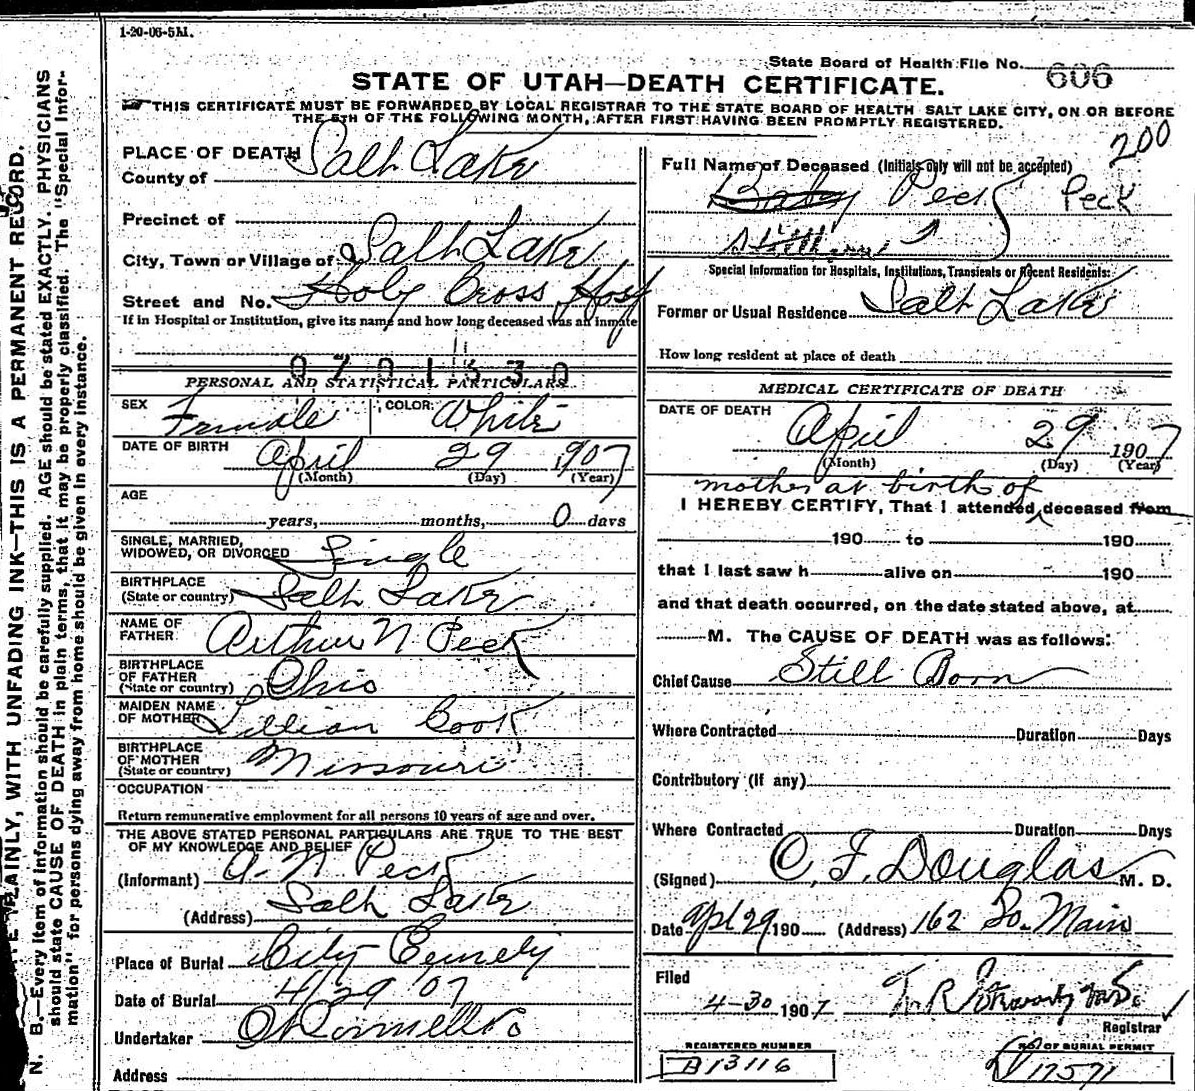 1-20-06-5M.
State Board of Health File No. 606
STATE OF UTAH—DEATH CERTIFICATE.
THIS CERTIFICATE MUST BE FORWARDED BY LOCAL REGISTRAR TO THE STATE BOARD OF HEALTH SALT LAKE CITY, ON OR BEFORE
THE 5TH OF THE FOLLOWING MONTH, AFTER FIRST HAVING BEEN PROMPTLY REGISTERED.
200
PLACE OF DEATH
County of Salt Lake
Precinct of
City, Town or Village of Salt Lake
Street and No. Holy Cross Hosp
If in Hospital or Institution, give its name and how long deceased was an inmate
0701530
PERSONAL AND STATISTICAL PARTICULARS.
SEX Female COLOR White
DATE OF BIRTH April 29 1907
(Month) (Day) (Year)
AGE
years, months, 0 days
SINGLE, MARRIED,
WIDOWED, OR DIVORCED Single
BIRTHPLACE
(State or country) Salt Lake
NAME OF
FATHER Arthur N Peck
BIRTHPLACE
OF FATHER
(State or country) Ohio
MAIDEN NAME
OF MOTHER Lillian Cook
BIRTHPLACE
OF MOTHER
(State or country) Missouri
OCCUPATION
Return remunerative employment for all persons 10 years of age and over.
THE ABOVE STATED PERSONAL PARTICULARS ARE TRUE TO THE BEST
OF MY KNOWLEDGE AND BELIEF
(Informant) A. N Peck
(Address) Salt Lake
Place of Burial City Cemety
Date of Burial 4/29 '07
Undertaker
Address
Full Name of Deceased (Initials only will not be accepted)
Baby Peck Peck
Stillborn
Special Information for Hospitals, Institutions, Transients or Recent Residents:
Former or Usual Residence Salt Lake
How long resident at place of death
MEDICAL CERTIFICATE OF DEATH
DATE OF DEATH April 29 1907
(Month) (Day) (Year)
mother at birth of
I HEREBY CERTIFY, That I attended deceased from
190 to 190
that I last saw h alive on 190
and that death occurred, on the date stated above, at
M. The CAUSE OF DEATH was as follows:
Chief Cause Still Born
Where Contracted Duration Days
Contributory (If any)
Where Contracted Duration Days
(Signed) C. F. Douglas M. D.
Date Apl 29 190 (Address) 162 So. Main
Filed
4-30 1907
Registrar
REGISTERED NUMBER
B13116
NO OF BURIAL PERMIT
17571
PLAINLY, WITH UNFADING INK—THIS IS A PERMANENT RECORD.
N. B.—Every item of information should be carefully supplied. AGE should be stated EXACTLY. PHYSICIANS
should state CAUSE OF DEATH in plain terms, that it may be properly classified. The "Special Infor-
mation" for persons dying away from home should be given in every instance.